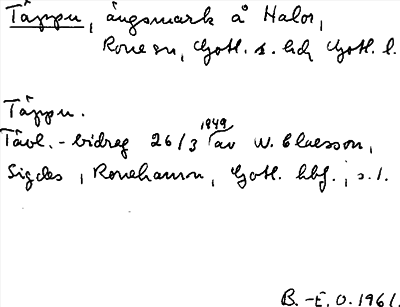 Täppu, ängsmark å Halor,
Rone sn, Gotl. s. hd, Gotl. l.
Täppu.
Tävl.-bidrag 26/3 1849 av W. Claesson,
Sigdes, Ronehamn, Gotl. hbf., s. 1.
B.-E. O. 1961.